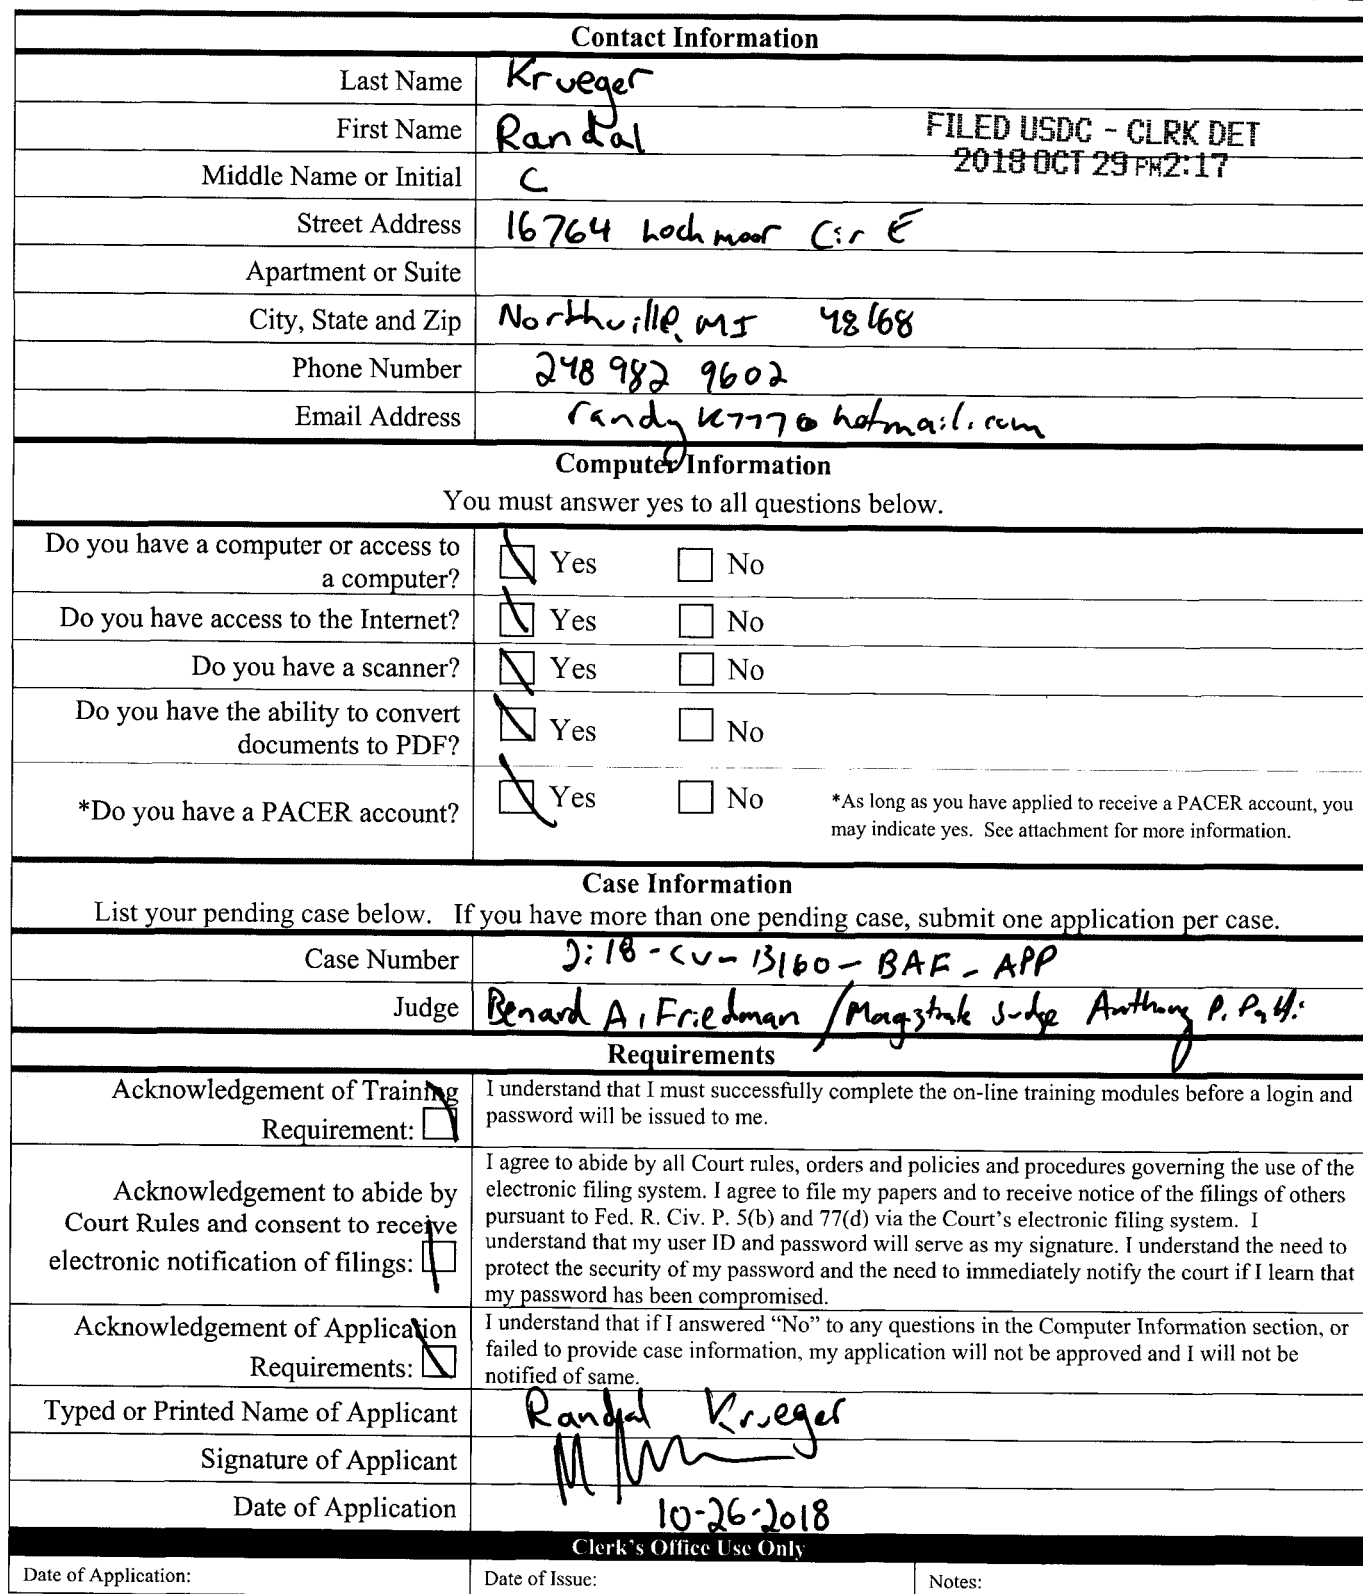 Contact Information
Last Name Krueger
First Name Randal
FILED USDC - CLRK DET
2018 OCT 29 PM2:17
Middle Name or Initial C
Street Address 16764 Lochmoor Cir E
Apartment or Suite
City, State and Zip Northville, MI 48168
Phone Number 248 982 9602
Email Address randyk777@hotmail.com
Computer Information
You must answer yes to all questions below.
Do you have a computer or access to
a computer? Yes No
Do you have access to the Internet? Yes No
Do you have a scanner? Yes No
Do you have the ability to convert
documents to PDF? Yes No
*Do you have a PACER account? Yes No
*As long as you have applied to receive a PACER account, you
may indicate yes. See attachment for more information.
Case Information
List your pending case below. If you have more than one pending case, submit one application per case.
Case Number 2:18-cv-13160-BAF-APP
Judge Benard A. Friedman / Magistrate Judge Anthony P. Patti
Requirements
Acknowledgement of Training
Requirement:
I understand that I must successfully complete the on-line training modules before a login and
password will be issued to me.
Acknowledgement to abide by
Court Rules and consent to receive
electronic notification of filings:
I agree to abide by all Court rules, orders and policies and procedures governing the use of the
electronic filing system. I agree to file my papers and to receive notice of the filings of others
pursuant to Fed. R. Civ. P. 5(b) and 77(d) via the Court's electronic filing system. I
understand that my user ID and password will serve as my signature. I understand the need to
protect the security of my password and the need to immediately notify the court if I learn that
my password has been compromised.
Acknowledgement of Application
Requirements:
I understand that if I answered "No" to any questions in the Computer Information section, or
failed to provide case information, my application will not be approved and I will not be
notified of same.
Typed or Printed Name of Applicant Randal Krueger
Signature of Applicant
Date of Application 10-26-2018
Clerk's Office Use Only
Date of Application: Date of Issue: Notes: